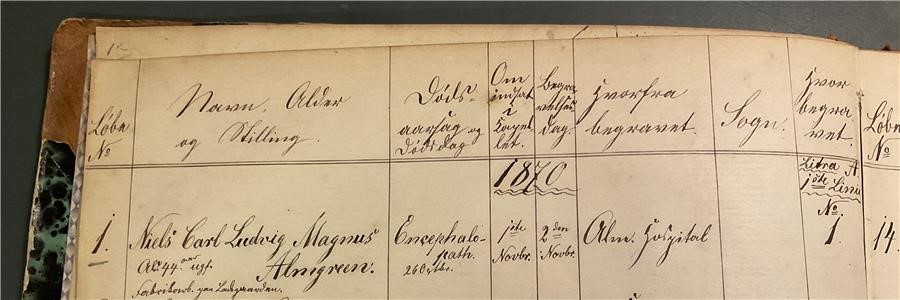 Løbe
No
Navn. Alder
og Stilling.
Døds-
aarsag og
Dødsdag
Om
indsat
i
Capel-
let.
Begra-
velses
dag.
Hvorfra
begravet.
Sogn.
Hvor
begra-
vet.
Løbe
No
1870
Litra A
1ste Linie
No
1.
Niels Carl Ludvig Magnus
Almgreen.
Ald. 44 aar ugf.
Fabrikarb. paa Ladegaarden.
Encephalo-
path.
26 Octbr.
1ste
Novbr.
2den
Novbr.
Alm. Hospital
1.
14.